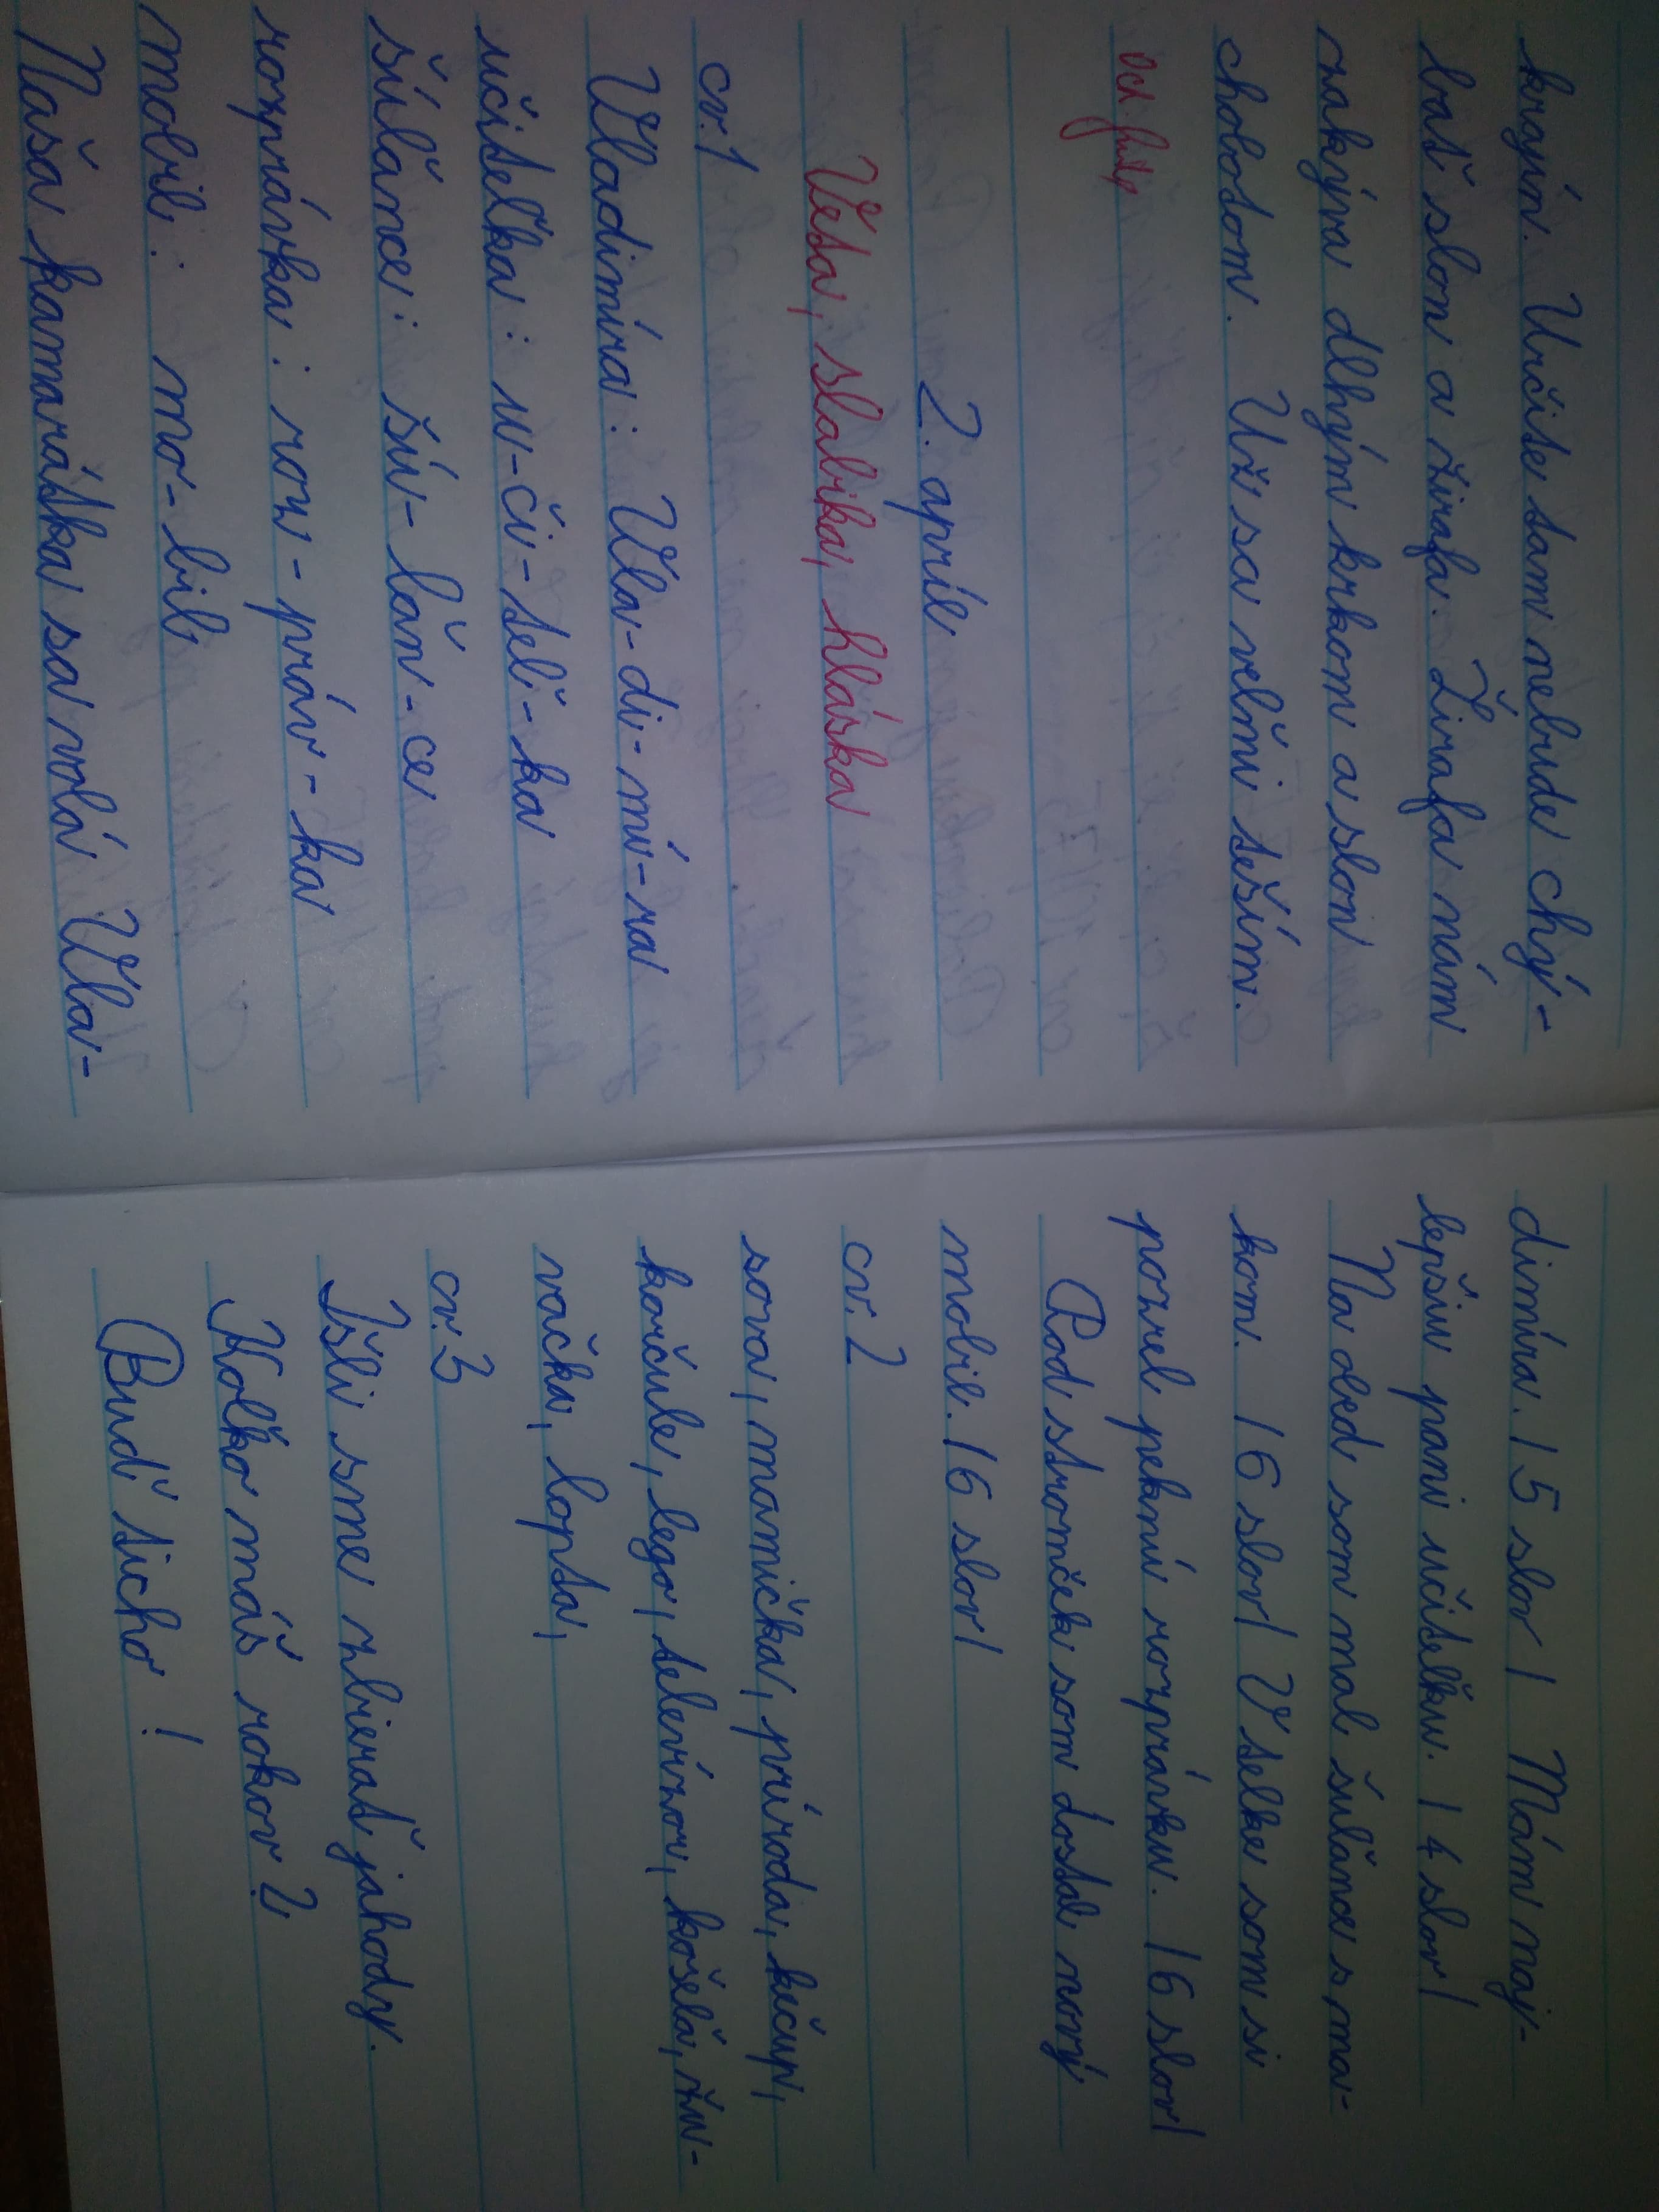 krajín. Určite tam nebude chý-
bať slon a žirafa. Žirafa nám
zakýva dlhým krkom a slon
chobotom. Už sa veľmi teším.
2. apríl
Veta, slabika, hláska
cv. 1
Vladimíra: Vla-di-mí-ra
učiteľka: u-či-teľ-ka
šúľance: šú-ľan-ce
rozprávka: roz-práv-ka
mobil: mo-bil
Naša kamarátka sa volá Vla-
dimíra. 15 slov/ Mám naj-
lepšiu pani učiteľku. 14 slov/
Na obed som mal šuľance s ma-
kom. 16 slov/ V telke som si
pozrel peknú rozprávku. 16 slov/
Pod stromček som dostal nový
mobil. 16 slov/
cv. 2
sova, mamička, príroda, kečup,
korčule, lego, televízor, košeľa, žu-
vačka, lopta,
cv. 3
Išli sme zbierať jahody.
Koľko máš rokov?
Buď ticho!